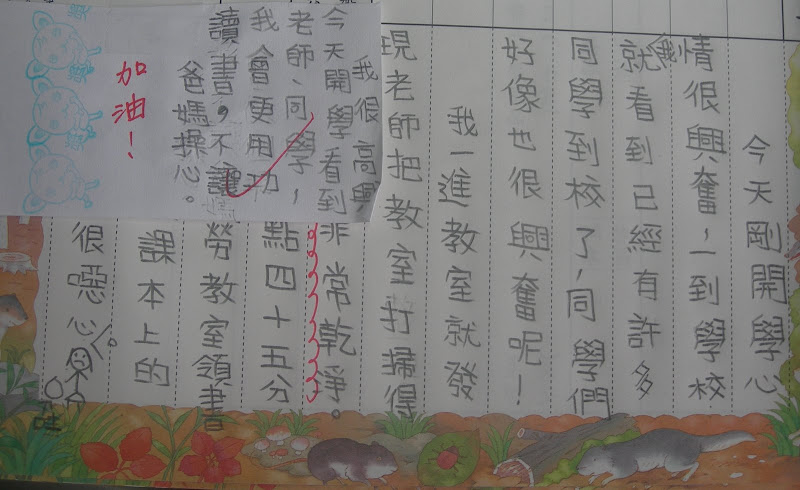 今天剛開學心
情很興奮,一到學校
我就看到已經有許多
同學到校了,同學們
好像也很興奮呢!
我一進教室就發
現老師把教室打掃得
非常乾淨。
點四十五分
勞教室領書
課本上的
很噁心。
哇
我很高興
今天開學看到
老師、同學,
我會更用功
讀書,不讓
爸媽操心。
加油!